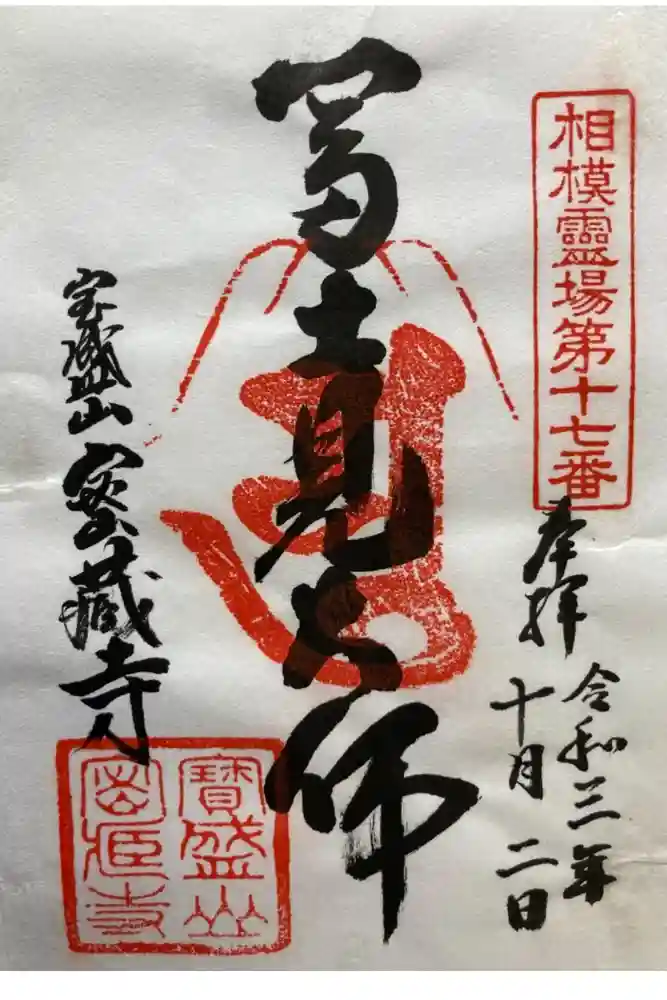 相模靈場第十七番
奉拝
令和三年
十月二日
冨士見大師
宝盛山密蔵寺
寶盛山
密蔵寺